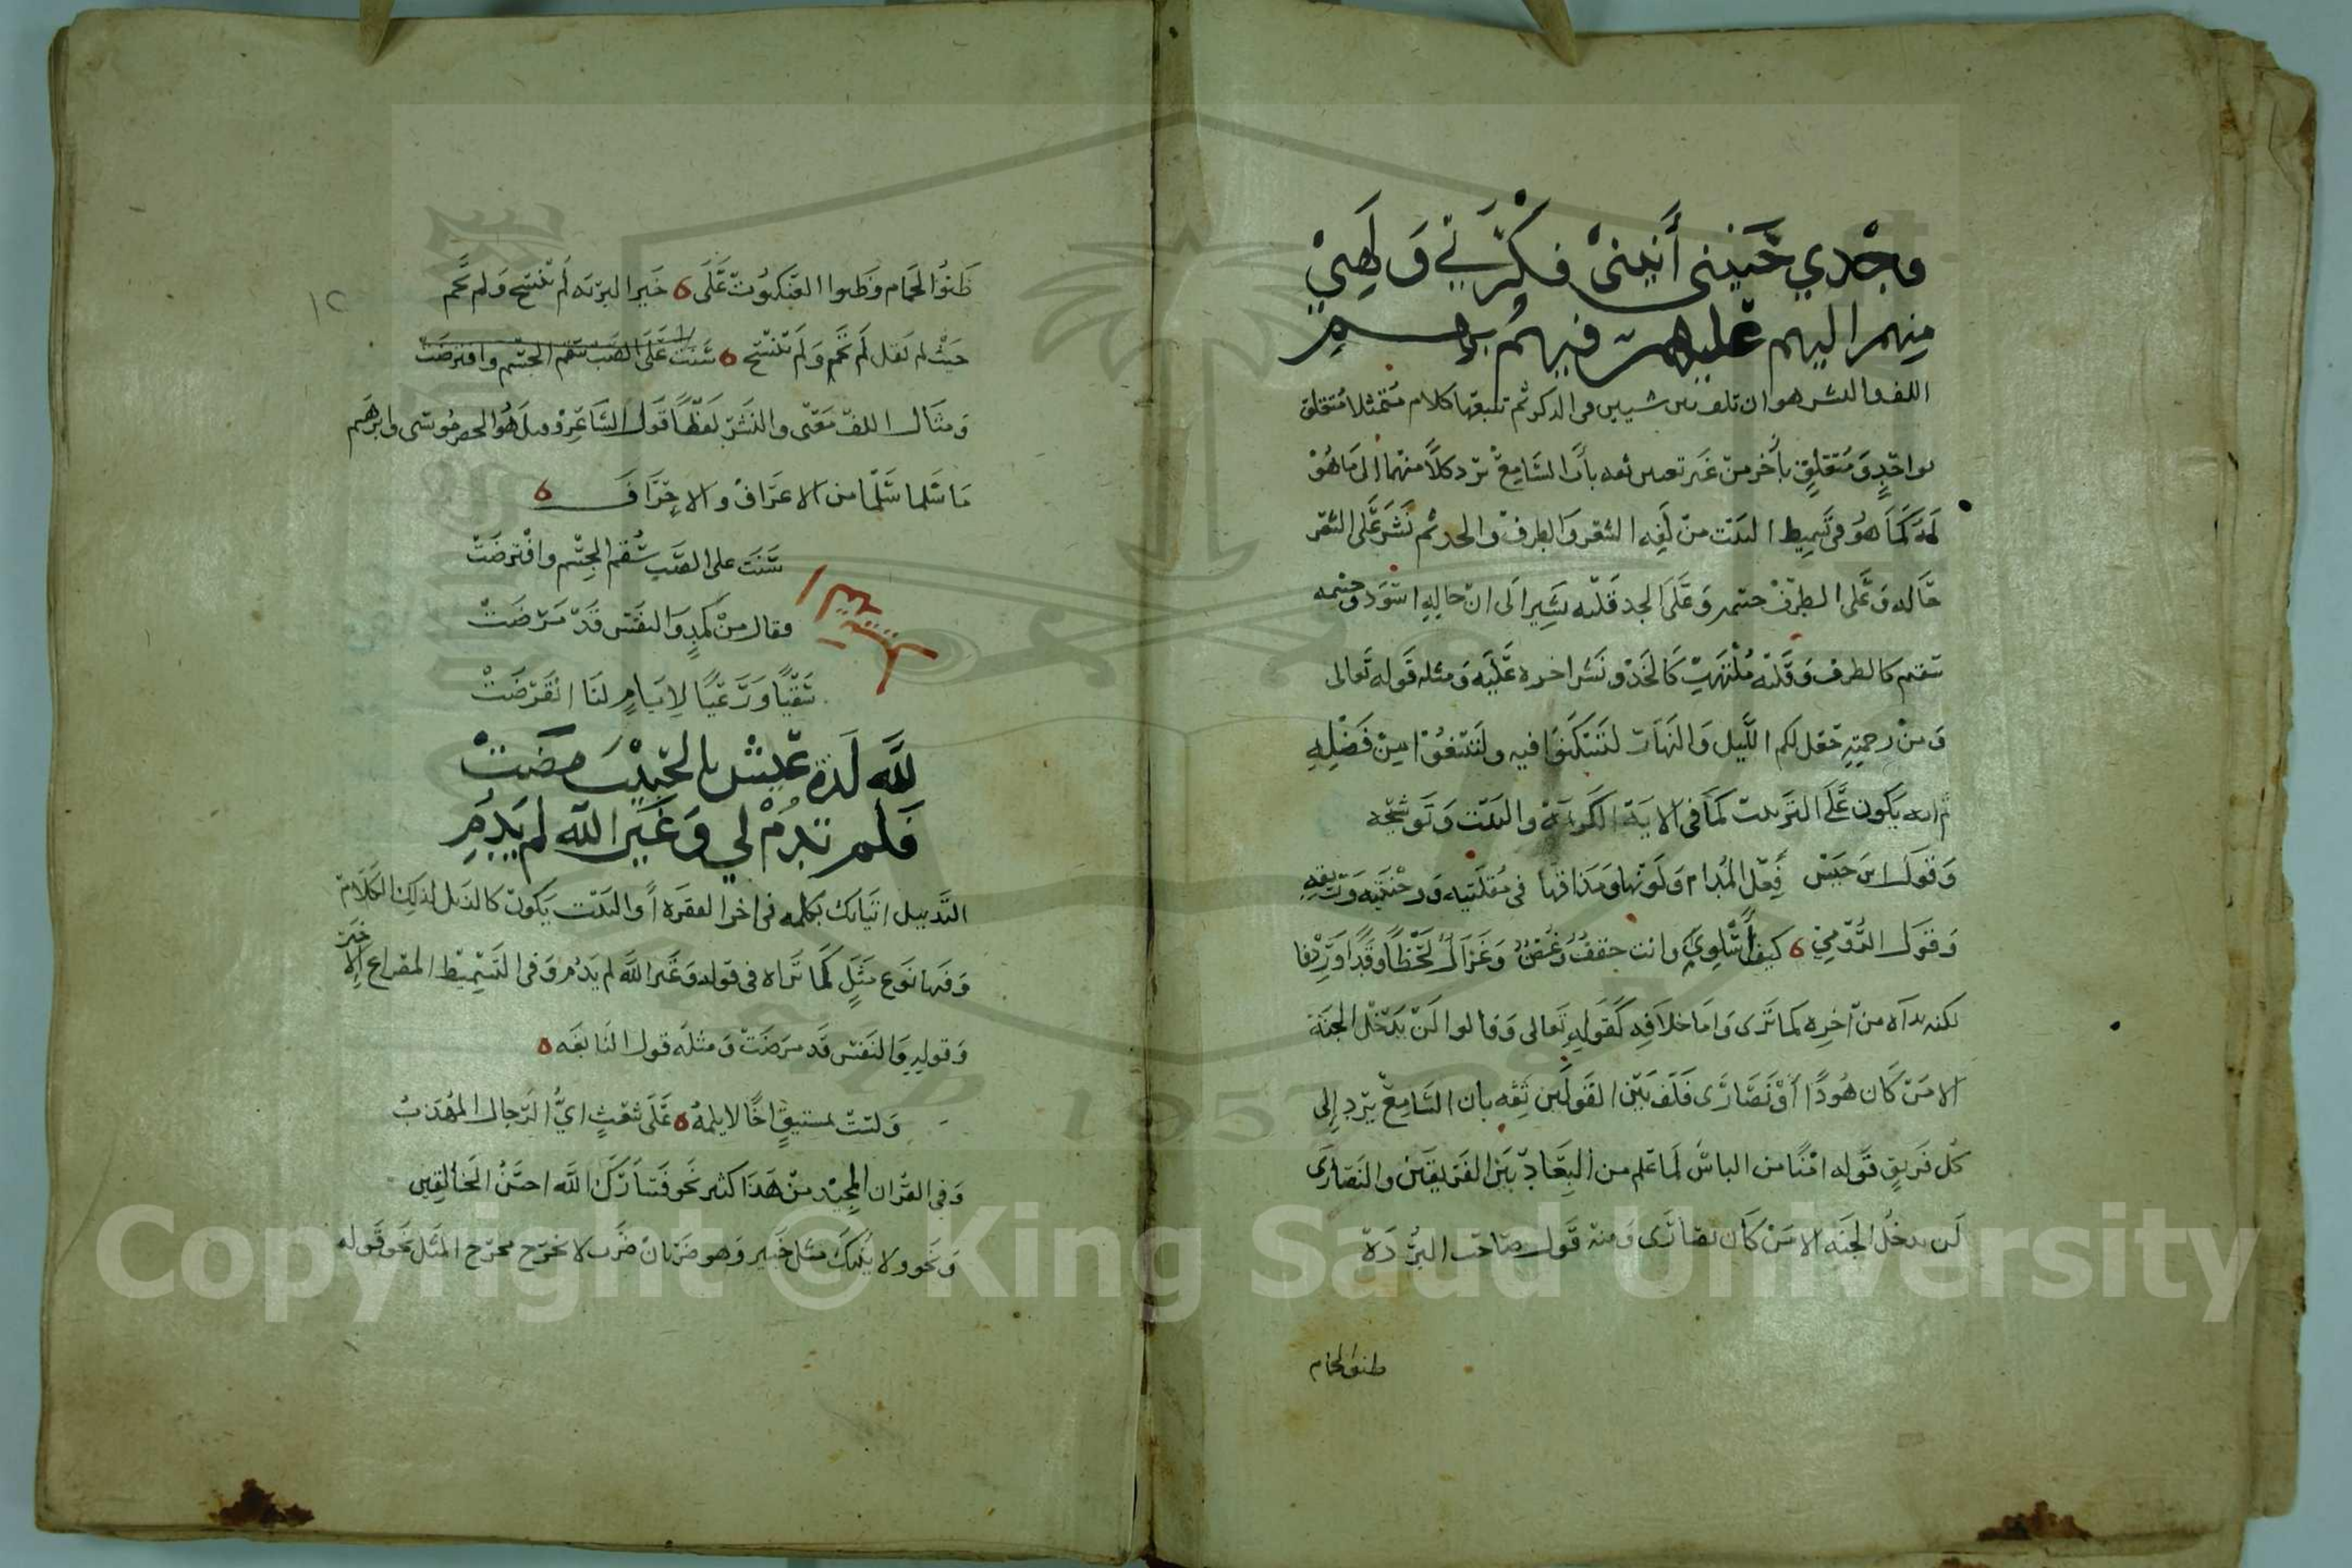 وجدي حنيني أنيني فكرتي ولهي
منهم اليهم عليهم فيهم بهم
اللف والنشر هو ان تلف بين شيين في الذكر ثم تتبعها كلام متمثلا متعلق
بواحد ومتعلق بأخر من غير تعيين ثقه بأن السامع يرد كلا منهما الى ما هو
له كما هو في تسميط البيت من لفه الشعر والطرف والخد ثم نشر على الشعر
حاله وعلى الطرف جسمه وعلى الخد قلبه يشير الى ان حاله اسود وجسمه
سقيم كالطرف وقلبه ملتهب كالخد ونشر اخره عليه ومثله قوله تعالى
ومن رحمته جعل لكم الليل والنهار لتسكنوا فيه ولتبتغوا من فضله
ثم انه يكون على الترتيب كما في الاية الكريمة والبيت وتوشيحه
وقول ابن حيس فعل المدام ولونها ومذاقها في مقلتيه ووجنتيه وريقه
وقول الرومي كيف أسلوي وانت حقف وغصن وغزال لحظا وقدا وردفا
لكنه بداه من اخره كما ترى واما خلافه كقوله تعالى وقالوا لن يدخل الجنة
الا من كان هودا أو نصارى فلف بين القولين ثقه بان السامع يرد إلى
كل فريق قوله امنا من الباس لما علم من البعاد بين الفريقين والنصارى
لن يدخل الجنه الا من كان نصارى ومنه قول صاحب البردة
ظنوا الحمام
ظنوا الحمام وظنوا العنكبوت على خير البريه لم تنسج ولم تحم
حيث لم يقل لم تحم ولم تنسج سنت على الصب سقم الجسم وافترضت
ومثال اللف معنى والنشر لفظا قول الشاعر وبل هو الحصر موسى وابرهيم
ما سلما سلما من الاعراف والاحراف
سنت على الصب سقم الجسم وافترضت
فقال من كمد والنفس قد مرضت
سقيا ورعيا لايام لنا انقرضت
لله لذة عيش بالحبيب مضت
فلم تدم لي وغير الله لم يدم
التذييل اتيانك بكلمه في اخر الفقره أو البيت يكون كالذيل لذلك الكلام
وفيها نوع مثل كما تراه في قوله وغير الله لم يدم وفي التسميط المصراع الاخير
وقوله والنفس قد مرضت ومثله قول النابغه
ولست بمستبق اخا لا يلمه على شعث اي الرجال المهذب
وفي القران المجيد من هذا كثير نحو فتبارك الله احسن الخالقين
ونحو ولا ينبئك مثل خبير وهو ضربان ضرب لا يخرج مخرج المثل نحو قوله
١٢
Copyright © King Saud University
1957